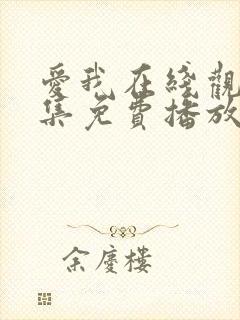 愛我在线觀
集免費播放
余慶樓